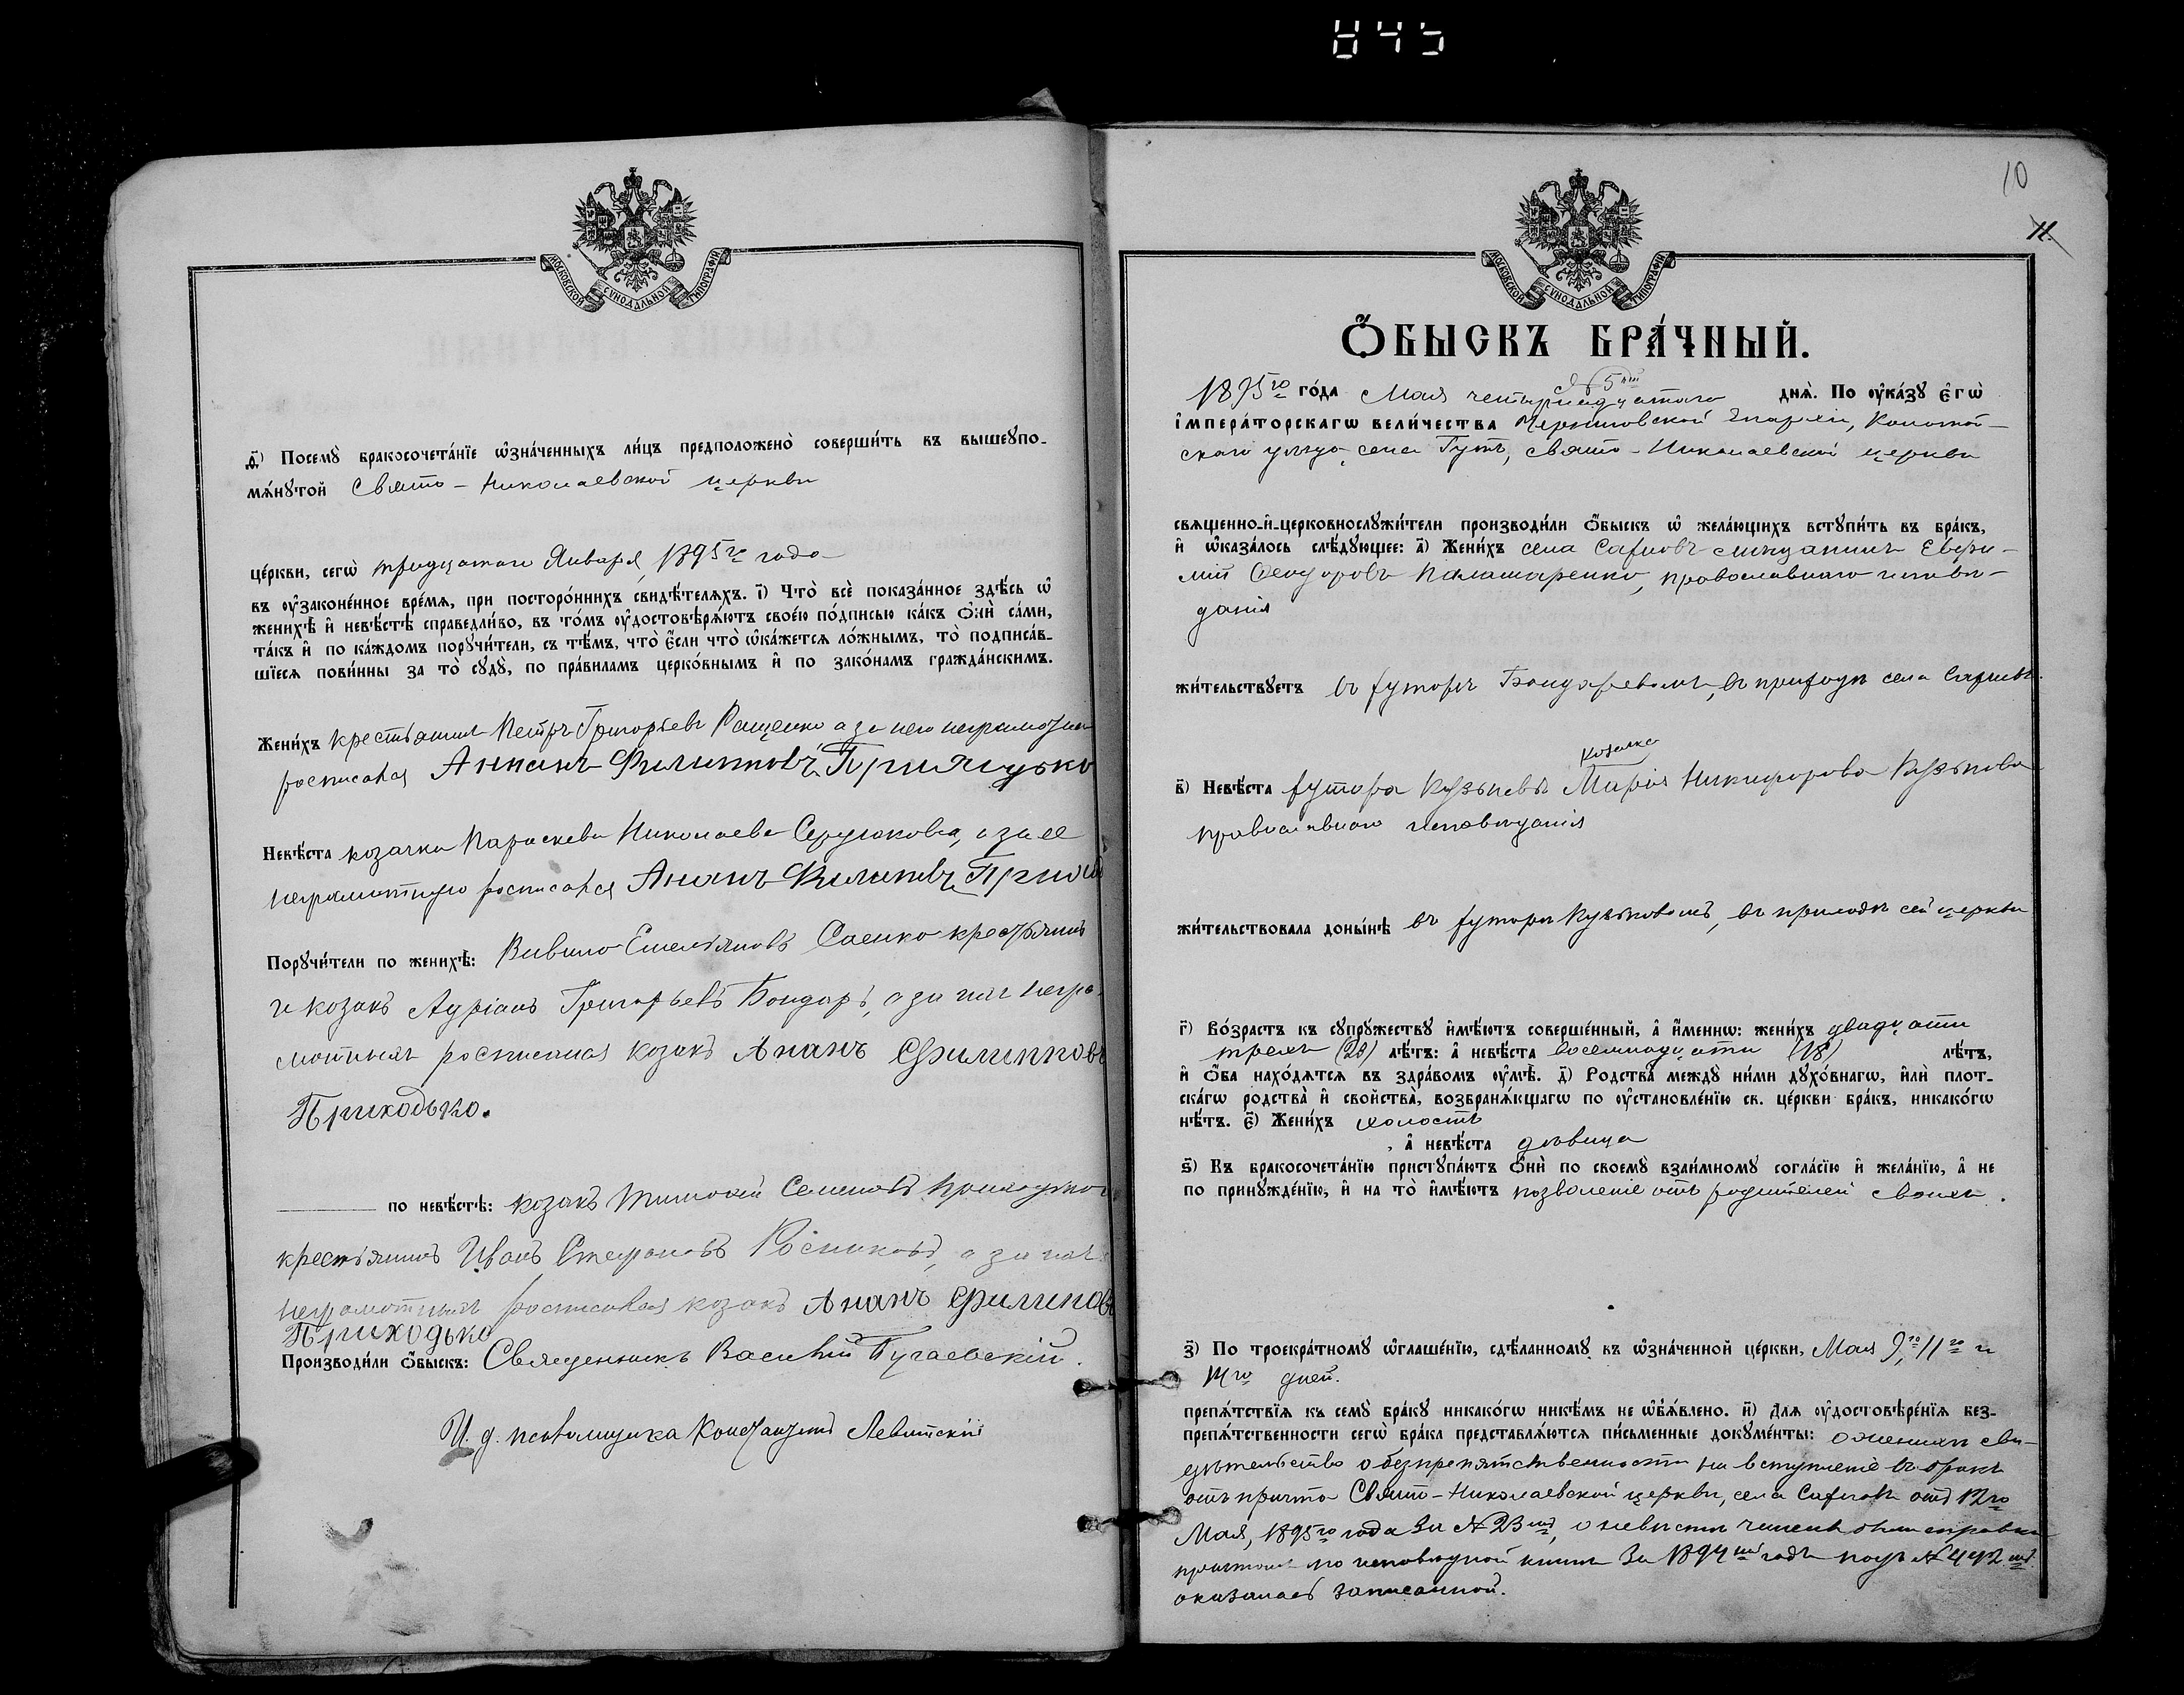 845
МОСКОВСКОЙ СѴНОДАЛЬНОЙ ТИПОГРАФІИ
д҃і) Посемꙋ̀ бракосочета́нїе ѡ҆зна́ченныхъ ли́цъ предположено̀ соверши́ть въ вышеꙋпо-
мѧ́нꙋтой Свято-Николаевской церкви
це́ркви, сегѡ̀ тридцатаго Января, 1895го года
въ ᲂу҆законе́нное вре́мѧ, при посторо́ннихъ свидѣ́телѧхъ. і҃) Что̀ всѐ показа́нное здѣ́сь ѡ҆
женихѣ̀ и҆ невѣ́стѣ справедли́во, въ то́мъ ᲂу҆достовѣрѧ́ютъ свое́ю по́дписью ка́къ ѻ҆нѝ са́ми,
та́къ и҆ по ка́ждомъ порꙋчи́тели, съ тѣ́мъ, что̀ є҆́сли что̀ ѡ҆ка́жетсѧ ло́жнымъ, то̀ подписа́в-
шїесѧ пови́нны за то̀ сꙋдꙋ̀, по пра́виламъ церко́внымъ и҆ по зако́намъ гражда́нскимъ.
Жени́хъ крестьянинъ Петръ Григорьевъ Ращенко а за него неграмотнаго
росписался Ананъ Филиповъ Приходько
Невѣ́ста козачка Параскева Николаева Сердюкова, а за ее
неграмотную росписался Ананъ Филиповъ
Порꙋчи́тели по женихѣ̀: Вавило Емельяновъ Саенко крестьянинъ
и козакъ Адріанъ Григорьевъ Бондарь, а за нихъ негра-
мотныхъ росписался козакъ Ананъ Филипповъ
Приходько.
по невѣ́стѣ: козакъ Тимофей Семеновъ Приходько и
крестьянинъ Иванъ Стефановъ а за нихъ
неграмотныхъ росписался козакъ Ананъ Филиповъ
Приходько
Производи́ли ѻ҆́быскъ: Священникъ Василій Пучаевскій.
И. д. псаломщика Константинъ Левитскій
10
11.
МОСКОВСКОЙ СѴНОДАЛЬНОЙ ТИПОГРАФІИ
Ѻ҆́БЫСКЪ БРА́ЧНЫЙ.
№ 5й
1895го го́да Мая четырнадцатаго днѧ̀. По ᲂу҆ка́зꙋ є҆гѡ̀
і҆мпера́торскагѡ вели́чества Черниговской Епархіи, Конотоп-
скаго уѣзда, села Гутъ, Свято-Николаевской церкви
свѧще́нно-и҆-церковнослꙋжи́тели производи́ли ѻ҆́быскъ ѡ҆ жела́ющихъ встꙋпи́ть въ бра́къ,
и҆ ѡ҆каза́лось слѣ́дꙋющее: а҃) Жени́хъ села Сахновъ мѣщанинъ Евфи-
мій Феодоровъ Паламаренко, православнаго исповѣ-
данія
жи́тельствꙋетъ въ хуторѣ Бондаревомъ, въ приходѣ села Сахновъ.
козачка
в҃) Невѣ́ста хутора Кузьковъ Марія Никифорова Кузькова
православнаго исповѣданія
жи́тельствовала доны́нѣ въ хуторѣ Кузьковомъ, въ приходѣ сей церкви
г҃) Во́зрастъ къ сꙋпрꙋ́жествꙋ и҆мѣ́ютъ соверше́нный, а҆ и҆́меннѡ: жени́хъ двадцати
трехъ (23) лѣ́тъ: а҆ невѣ́ста восемнадцати (18) лѣ́тъ,
и҆ ѻ҆́ба нахо́дѧтсѧ въ здра́вомъ ᲂу҆мѣ̀. д҃) Родства̀ междꙋ̀ ни́ми дꙋхо́внагѡ, и҆лѝ плот-
ска́гѡ родства̀ и҆ сво́йства, возбранѧ́ющагѡ по ᲂу҆становле́нїю св. це́ркви бра́къ, никако́гѡ
нѣ́тъ. є҃) Жени́хъ холостъ
, а҆ невѣ́ста дѣвица
ѕ҃) Къ бракосочета́нїю пристꙋпа́ютъ ѻ҆нѝ по своемꙋ̀ взаи́мномꙋ согла́сїю и҆ жела́нїю, а҆ не
по принꙋжде́нїю, и҆ на то̀ и҆мѣ́ютъ позволеніе отъ родителей своихъ.
з҃) По троекра́тномꙋ ѡ҆глаше́нїю, сдѣ́ланномꙋ въ ѡ҆зна́ченной це́ркви, Мая 9го, 11го и
14го дней.
препѧ́тствїѧ къ семꙋ̀ бра́кꙋ никако́гѡ никѣ́мъ не ѡ҆б̾ѧ́влено. и҃) Длѧ ᲂу҆достовѣре́нїѧ без-
препѧ́тственности сегѡ̀ бра́ка представлѧ́ютсѧ пи́сьменные докꙋме́нты: о женихѣ сви-
дѣтельство о безпрепятственности на вступленіе въ бракъ
отъ причта Свято-Николаевской церкви, села Сахновъ отъ 12го
Мая, 1895го года за №23мъ, о невѣстѣ чинена была справка
причтомъ по исповѣдной книгѣ за 1894й годъ подъ №442мъ
оказалась записанной.